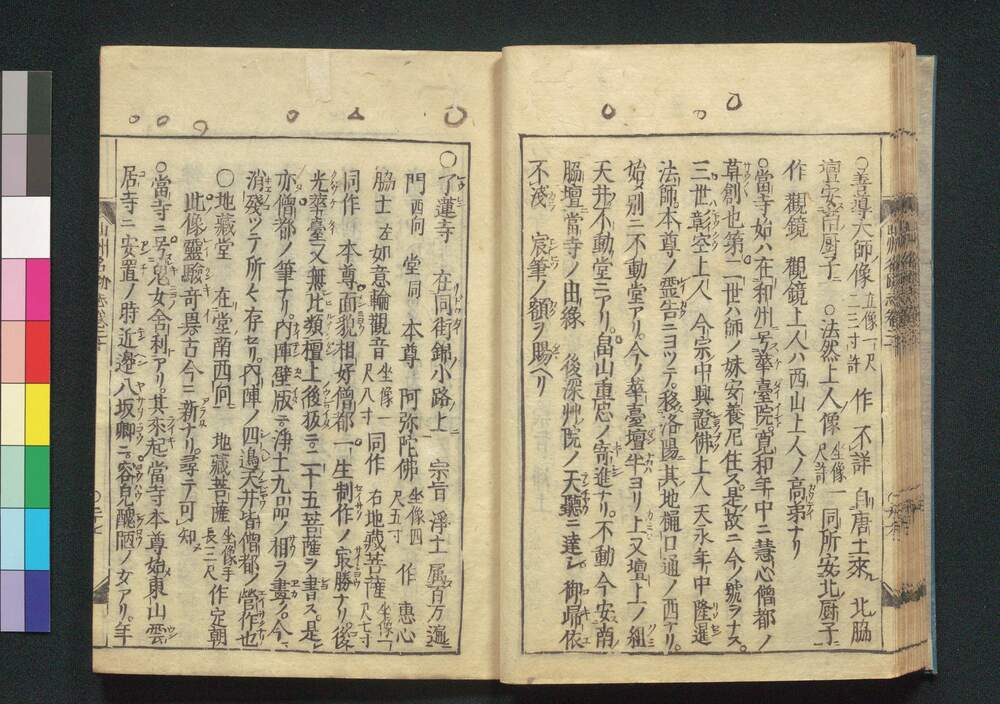 ○善導大師像 立像一尺二三寸許 作 不詳 自唐土來 北脇
壇安南厨子ニ ○法然上人像 坐像一尺許 同所安北厨子ニ
作 觀鏡 觀鏡上人ハ西山上人ノ高弟ナリ
○當寺始ハ在和州号華臺院寛和年中ニ慧心僧都ノ
草創也第二世ハ師ノ妹安養尼住ス是故ニ今ノ號ヲナス
三世彰空上人 今宗中興證佛上人天永年中隆暹
法師本尊ノ靈告ニヨツテ移洛陽其地樋口通ノ西ナリ
始メ別ニ不動堂アリ今ノ華臺壇半ヨリ上又壇上ノ組
天井不動堂ニアリ畠山重忠ノ寄進ナリ不動今安南
脇壇當寺ノ由緣 後深艸院ノ天聽ニ達シ御歸依
不淺 宸筆ノ額ヲ賜ヘリ
○了蓮寺 在同街錦小路上ニ 宗旨 淨土 属百万遍ニ
門 西向 堂 同 本尊 阿弥陀佛 坐像四尺五寸 作 惠心
脇士 左 如意輪觀音 坐像一尺八寸 同作 右 地藏菩薩 坐像一尺七寸
同作 本尊面貌相好僧都一生制作ノ最勝ナリ後
光華臺又無比類檀上後板ニ二十五菩薩ヲ書ス是レ
亦僧都ノ筆ナリ内陣壁版ニ淨土九品ノ相ヲ畵ク今ハ
消殘ツテ所々存セリ内陣ノ四邉天井皆僧都ノ營作也
○地藏堂 在堂南西向 地藏菩薩 坐像手長三尺 作 定朝
此像靈驗奇異古今ニ新ナリ尋テ可知
○當寺ニ号兒女舍利アリ其來起當寺本尊始東山雲
居寺ニ安置ノ時近邉八坂郷ニ容皃醜陋ノ女アリ年